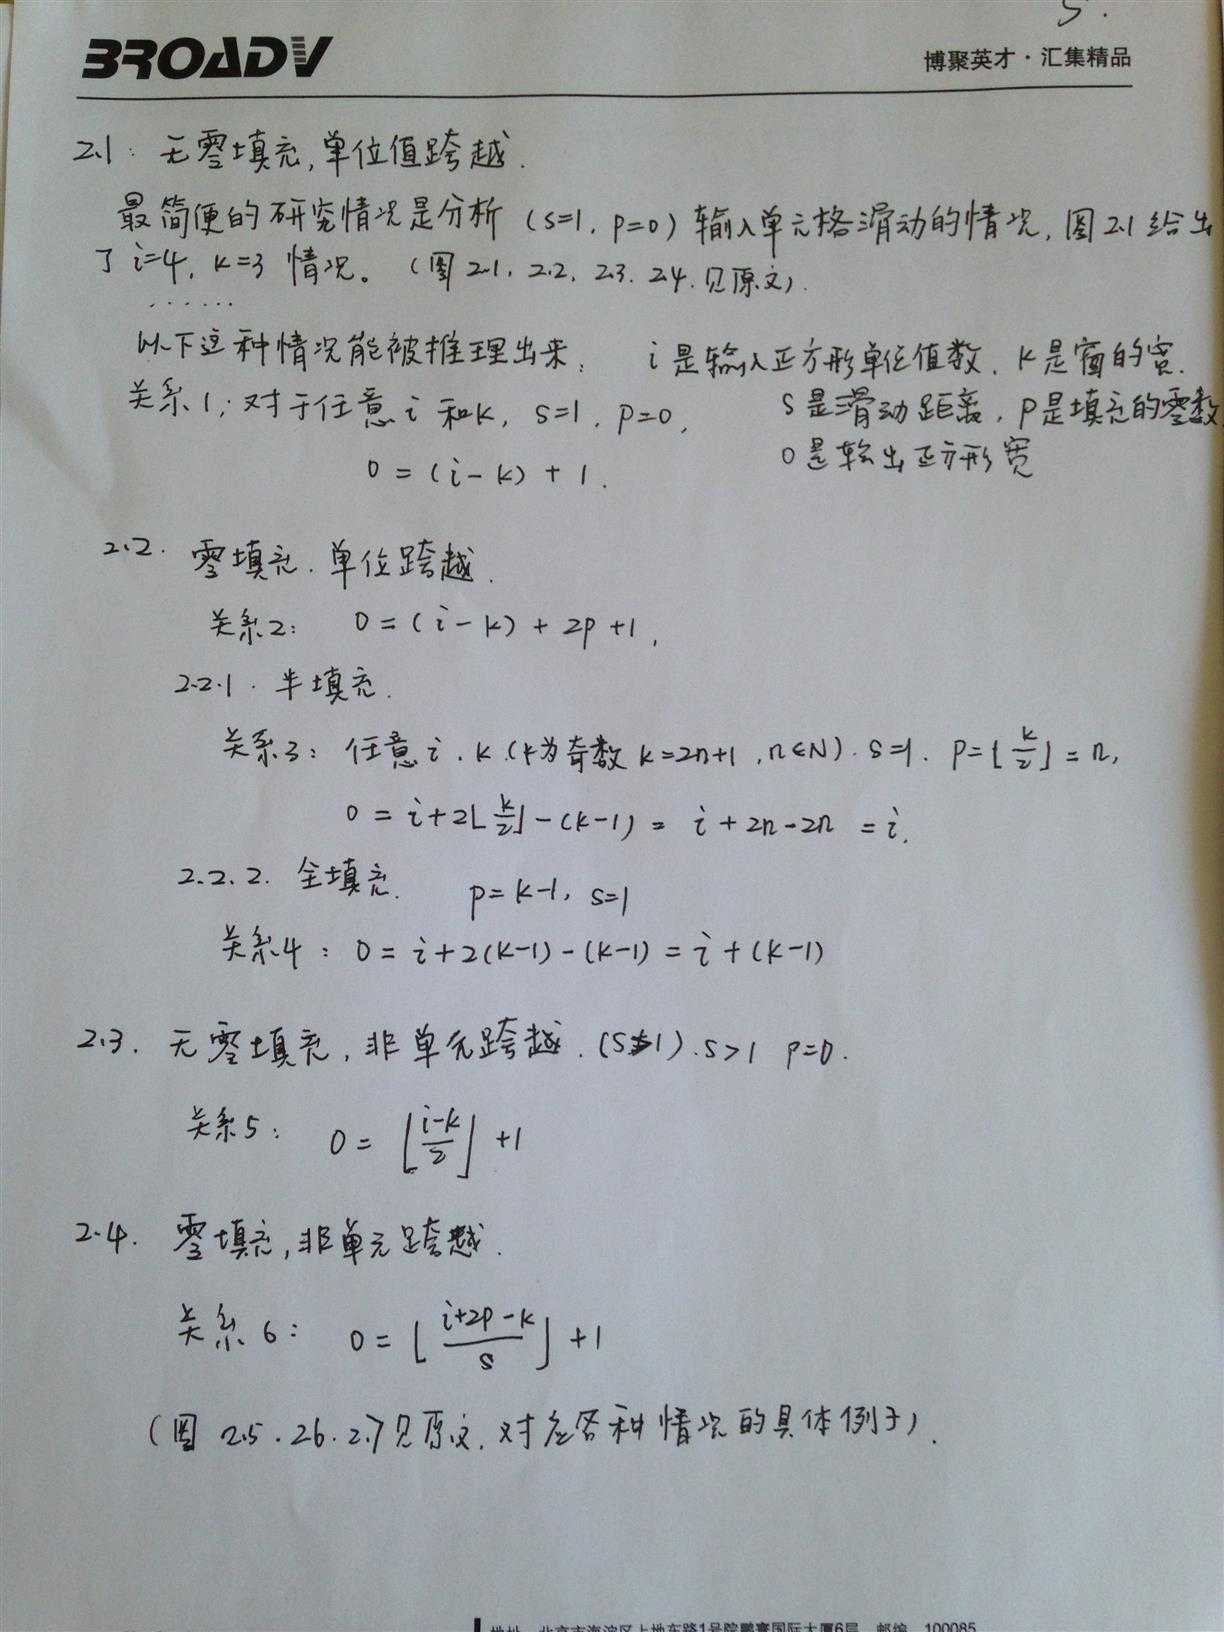 5.
BROADV
博聚英才·汇集精品
2.1: 无零填充,单位值跨越.
最简便的研究情况是分析 (s=1, p=0) 输入单元格滑动的情况, 图2.1给出
了 i=4, k=3 情况。(图2.1, 2.2, 2.3. 2.4. 见原文).
......
以下这种情况能被推理出来: i是输入正方形单位值数, k是窗的宽.
关系1: 对于任意 i 和 k, s=1, p=0, s是滑动距离, p是填充的零数,
o = (i-k) + 1. o是输出正方形宽
2.2. 零填充. 单位跨越.
关系2: o = (i-k) + 2p + 1,
2.2.1. 半填充.
关系3: 任意 i. k (k为奇数 k=2n+1, n∈N). s=1. p=⌊k/2⌋ = n,
o = i+2⌊k/2⌋-(k-1) = i+2n-2n = i.
2.2.2. 全填充. p=k-1, s=1
关系4: o = i+2(k-1)-(k-1) = i+(k-1)
2.3. 无零填充, 非单元跨越. (s≠1). s>1 p=0.
关系5: o = ⌊(i-k)/2⌋ +1
2.4. 零填充, 非单元跨越.
关系6: o = ⌊(i+2p-k)/s⌋ +1
(图 2.5. 2.6. 2.7 见原文. 对应各种情况的具体例子).
地址 北京市海淀区上地东路1号院鹏寰国际大厦6层 邮编 100085